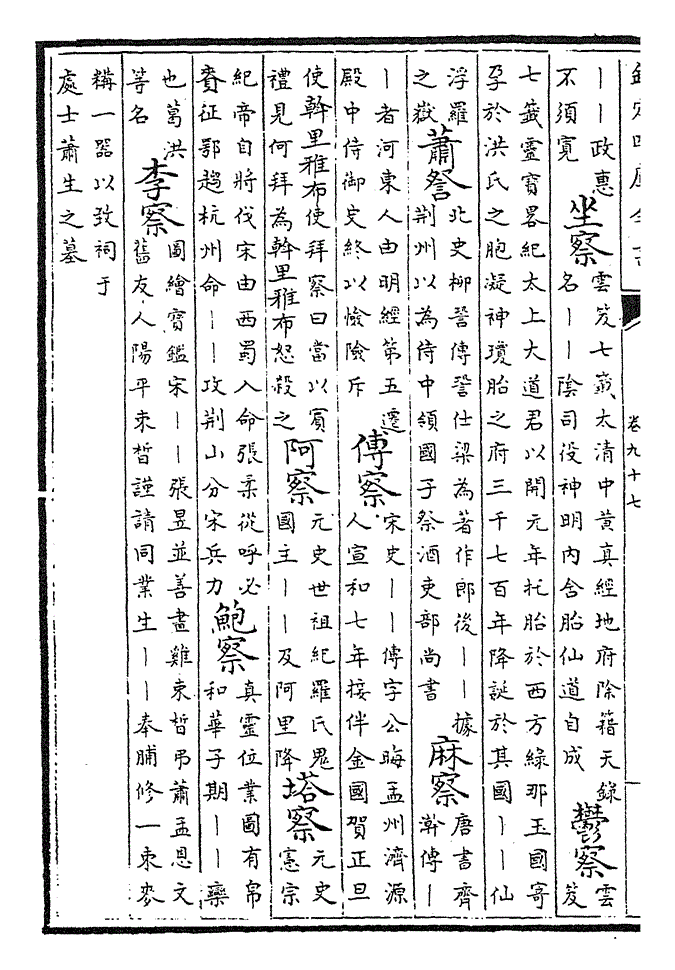 欽定四庫全書
卷九十七
——政惠
不須寛
坐察
雲笈七籤太清中黄真經地府除籍天錄
名——陰司役神明内含胎仙道自成
鬱察
雲
笈
七籤靈寶畧紀太上大道君以開元年托胎於西方綠那玉國寄
孕於洪氏之胞凝神瓊胎之府三千七百年降誕於其國——仙
浮羅
之嶽
蕭詧
北史柳詧傳詧仕梁為著作郎後——據
荆州以為侍中領國子祭酒吏部尚書
麻察
唐書齊
澣傳—
—者河東人由明經第五遷
殿中侍御史終以憸險斥
傅察
宋史——傳字公晦孟州濟源
人宣和七年接伴金國賀正旦
使斡里雅布使拜察曰當以賔
禮見何拜為斡里雅布怒殺之
阿察
元史世祖紀羅氏鬼
國主——及阿里降
塔察
元史
憲宗
紀帝自將伐宋由西蜀入命張柔從呼必
賚征鄂趙杭州命——攻荆山分宋兵力
鮑察
真靈位業圖有帛
和華子期——藥
也葛洪
等名
李察
圖繪寳鑑宋——張昱並善畫雞束晳弔蕭孟恩文
舊友人陽平束晳謹請同業生——奉脯修一束麥
糒一器以致祠于
處士蕭生之墓